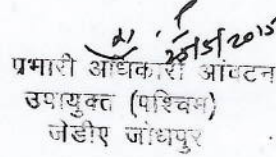 25/5/2015
प्रभारी अधिकारी आंवटन
उपायुक्त (पश्चिम)
जेडीए जोधपुर